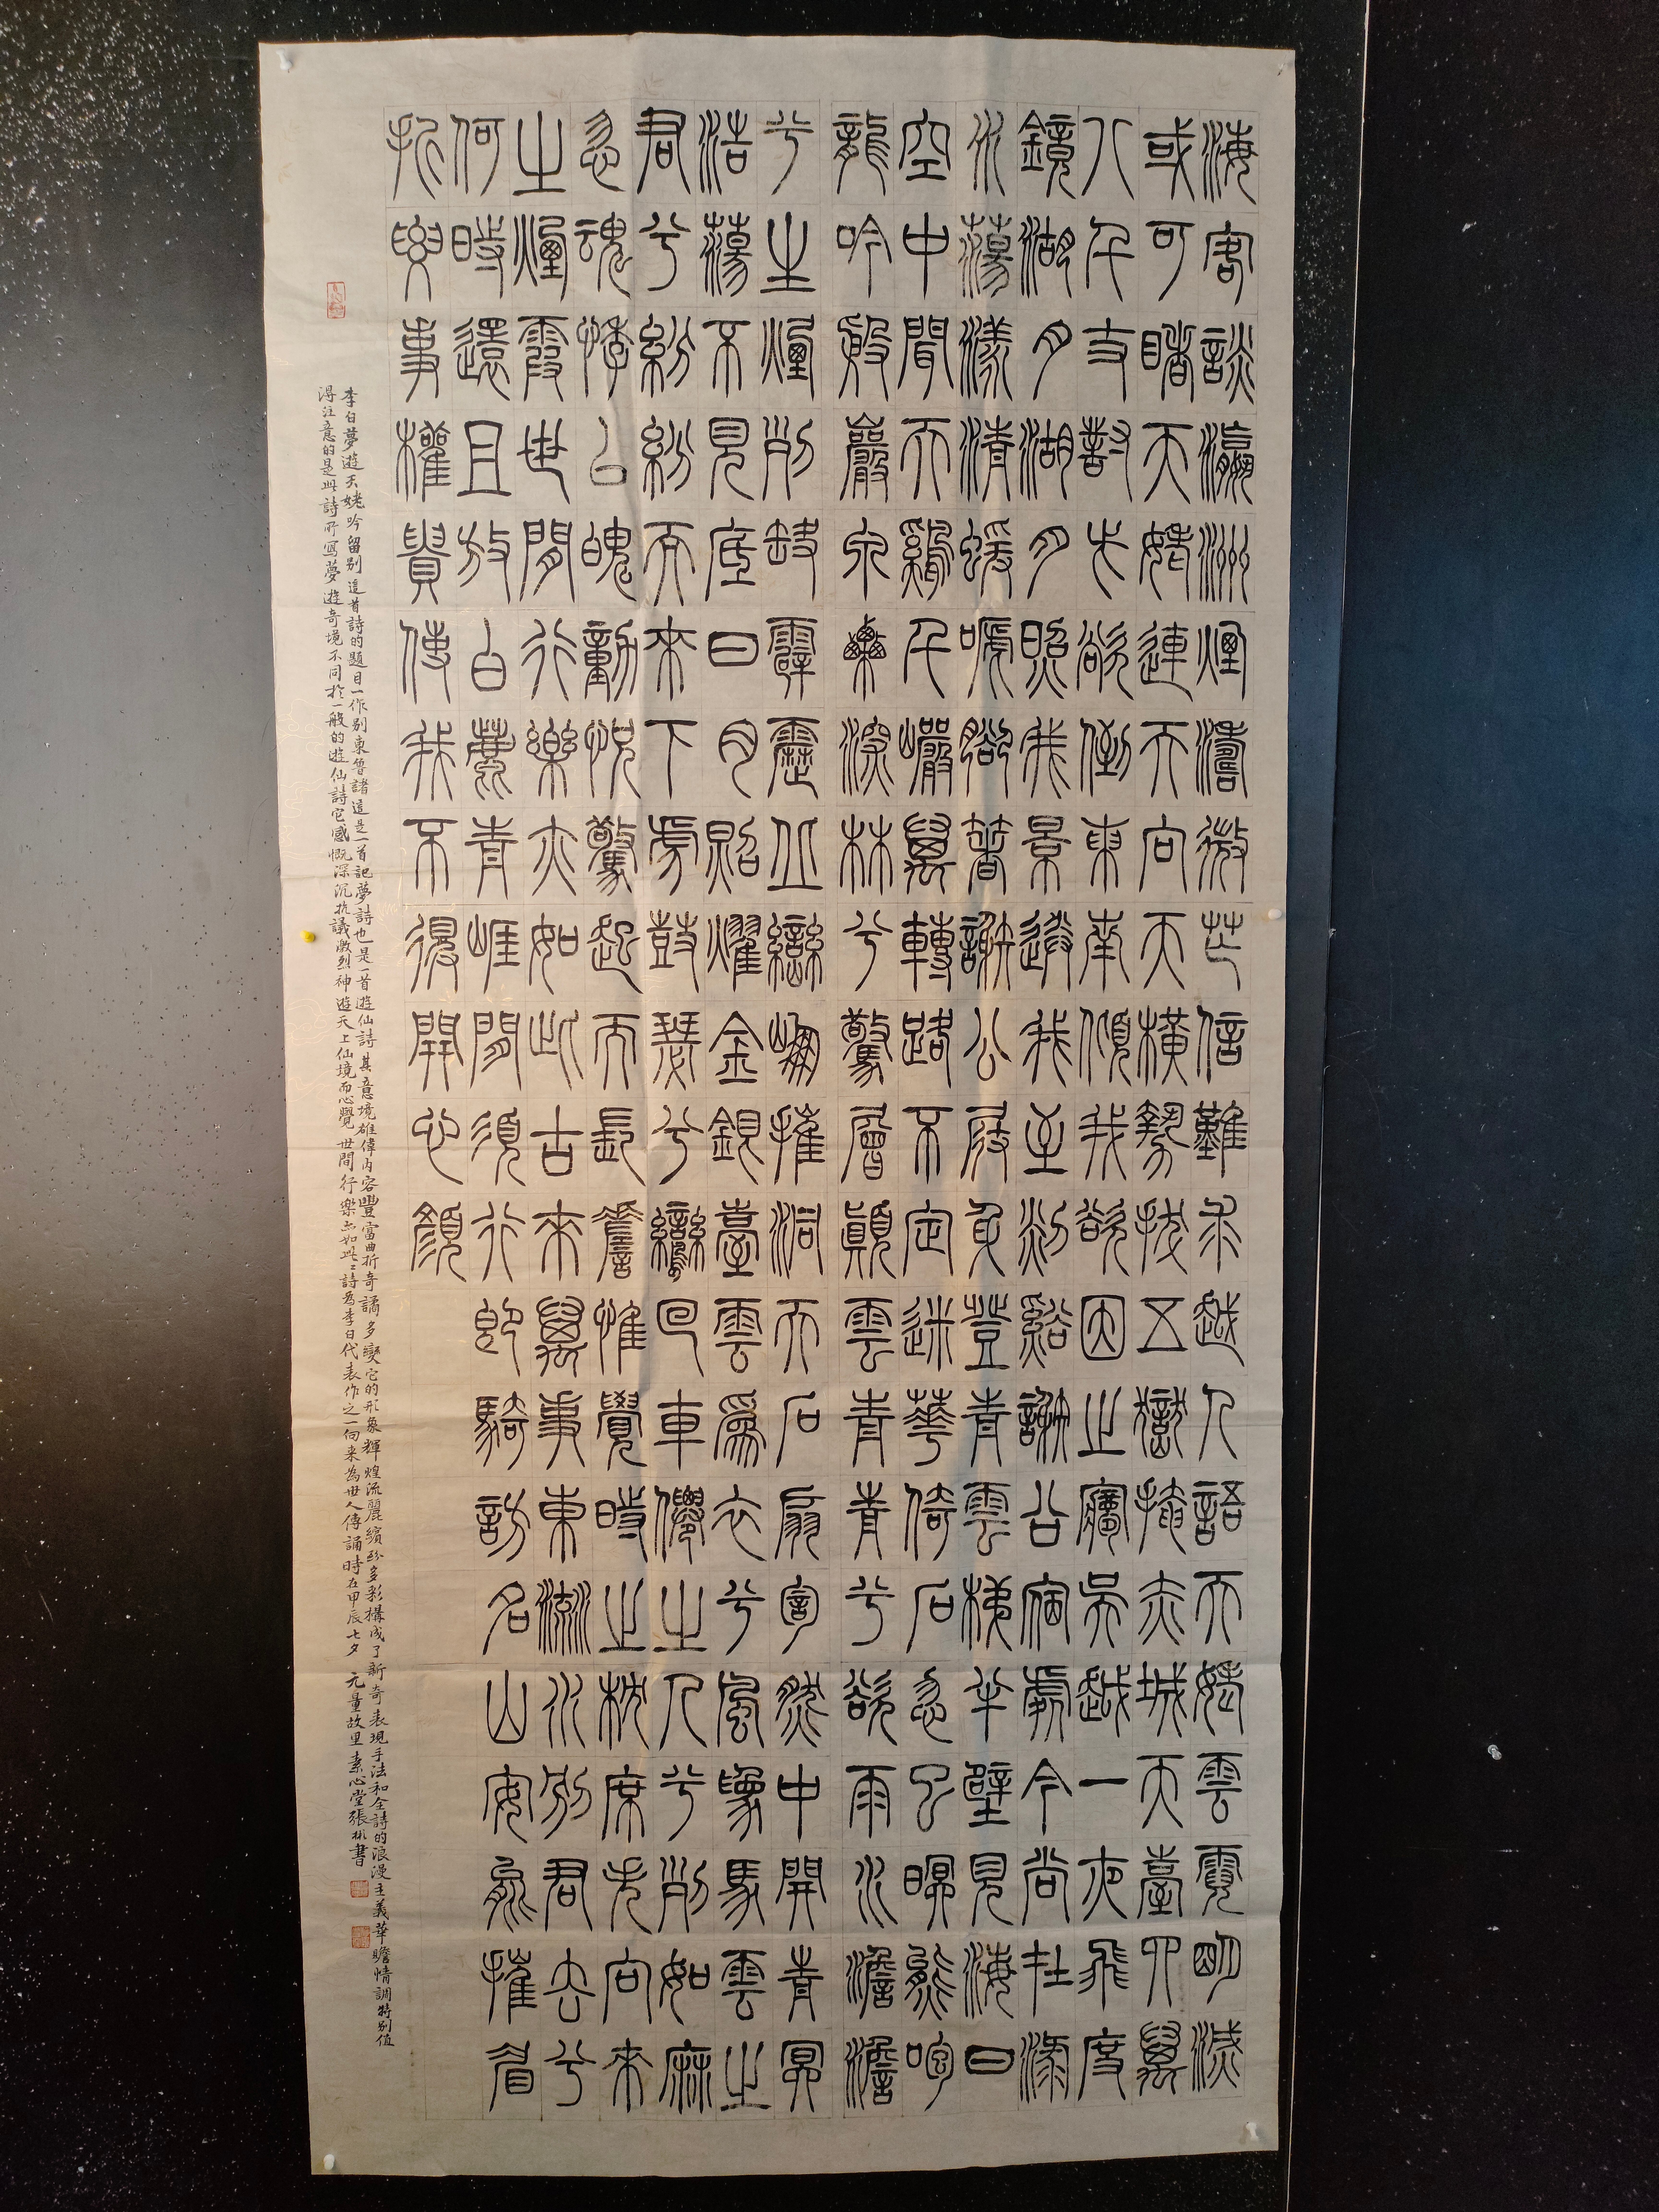 海客談瀛洲煙濤微茫信難求越人語天姥雲霓明滅
或可睹天姥連天向天橫勢拔五嶽掩赤城天臺四萬
八千丈對此欲倒東南傾我欲因之夢吳越一夜飛度
鏡湖月湖月照我景送我至剡谿謝公宿處今尚在淥
水蕩漾清蝯嗁腳著謝公屐身登青雲梯半壁見海日
空中聞天鷄千巖萬轉路不定迷華倚石忽已暝熊咆
龍吟殷巖泉慄深林兮驚層顛雲青青兮欲雨水澹澹
兮生煙列缺霹靂丘巒崩摧洞天石扇訇然中開青冥
浩蕩不見底日月照耀金銀臺雲爲衣兮風爲馬雲之
君兮紛紛而來下虎鼓瑟兮鸞回車僊之人兮列如麻
忽魂悸以魄動怳驚起而長嗟惟覺時之枕席失向來
之煙霞世間行樂亦如此古來萬事東流水別君去兮
何時還且放白鹿青崖間須行即騎訪名山安能摧眉
折腰事權貴使我不得開心顏
李白夢遊天姥吟留别這首詩的題目一作别東魯諸這是一首記夢詩也是一首遊仙詩其意境雄偉内容豐富曲折奇譎多變它的形象輝煌流麗繽紛多彩構成了新奇表現手法和全詩的浪漫主義華贍情調特别值
得注意的是此詩所寫夢遊奇境不同於一般的遊仙詩它感慨深沉抗議激烈神遊天上仙境而心覺世間行樂亦如此詩為李白代表作之一向来為世人傳誦時在甲辰七夕 元量故里素心堂張彬書